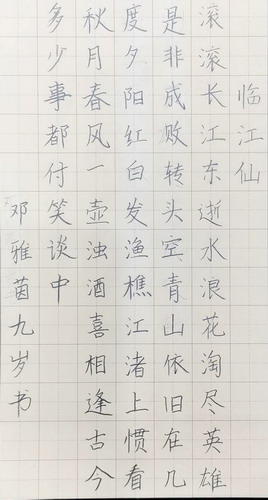 临江仙
滚滚长江东逝水浪花淘尽英雄
是非成败转头空青山依旧在几
度夕阳红白发渔樵江渚上惯看
秋月春风一壶浊酒喜相逢古今
多少事都付笑谈中
邓雅茵九岁书